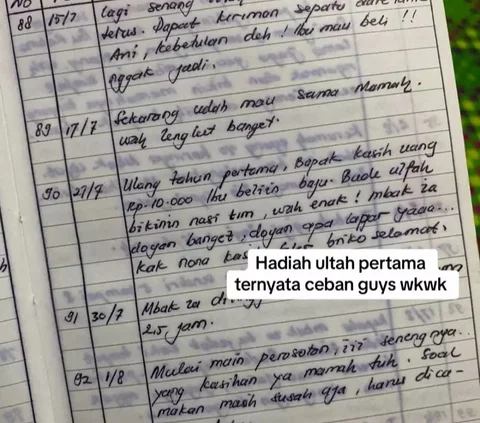 No
88 15/7 lagi senang
terus. Dapat kiriman sepatu dari
Ani, kebetulan deh! Ibu mau beli !!
nggak jadi.
89 17/7 Sekarang udah mau sama Mamah.
wah lengket banget.
90 27/7 Ulang tahun pertama, Bapak kasih uang
Rp. 10.000 Ibu beliin baju. Bude ulfah
bikinin nasi tim, wah enak! mbak za
doyan banget, doyan apa lapar yaaa...
kak nona kasih briko selamat,
Hadiah ultah pertama
ternyata ceban guys wkwk
91 30/7 Mbak za
2,5 jam.
92 1/8 Mulai main perosotan, iii senengnya..
yang kasihan ya mamah tuh. Soal
makan masih susah aja, harus dica-